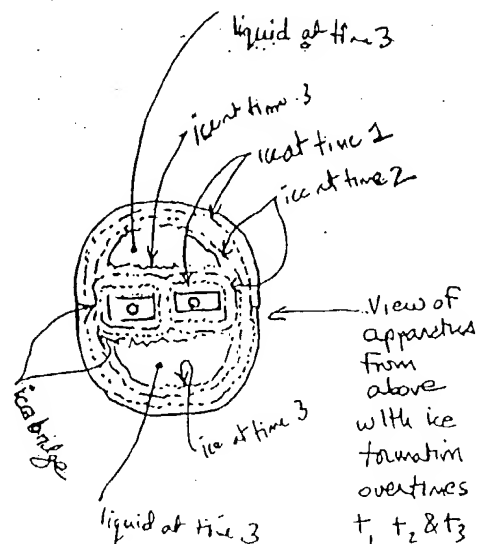 liquid at time 3
ice at time 3
ice at time 1
ice at time 2
View of
apparatus
from
above
with ice
formation
over times
t1 t2 & t3
ice bridge
ice at time 3
liquid at time 3